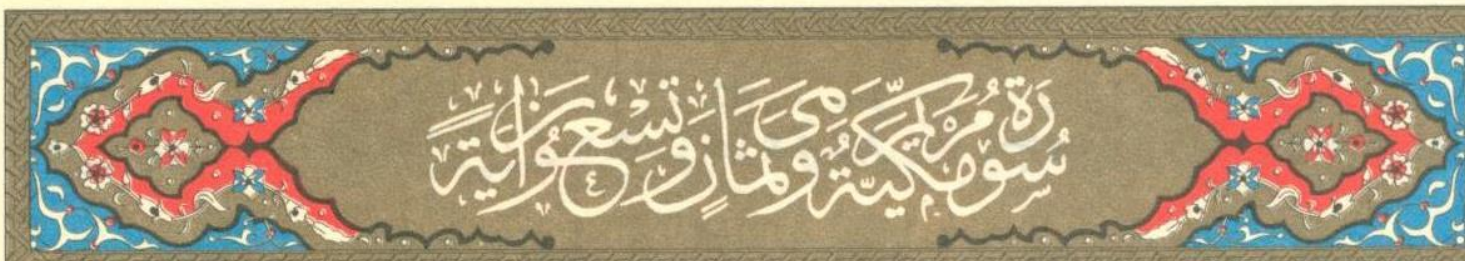 سُورَةُ مَرْيَمَ مَكِّيَّةٌ وَهِيَ ثَمَانٍ وَتِسْعُونَ اٰيَةً